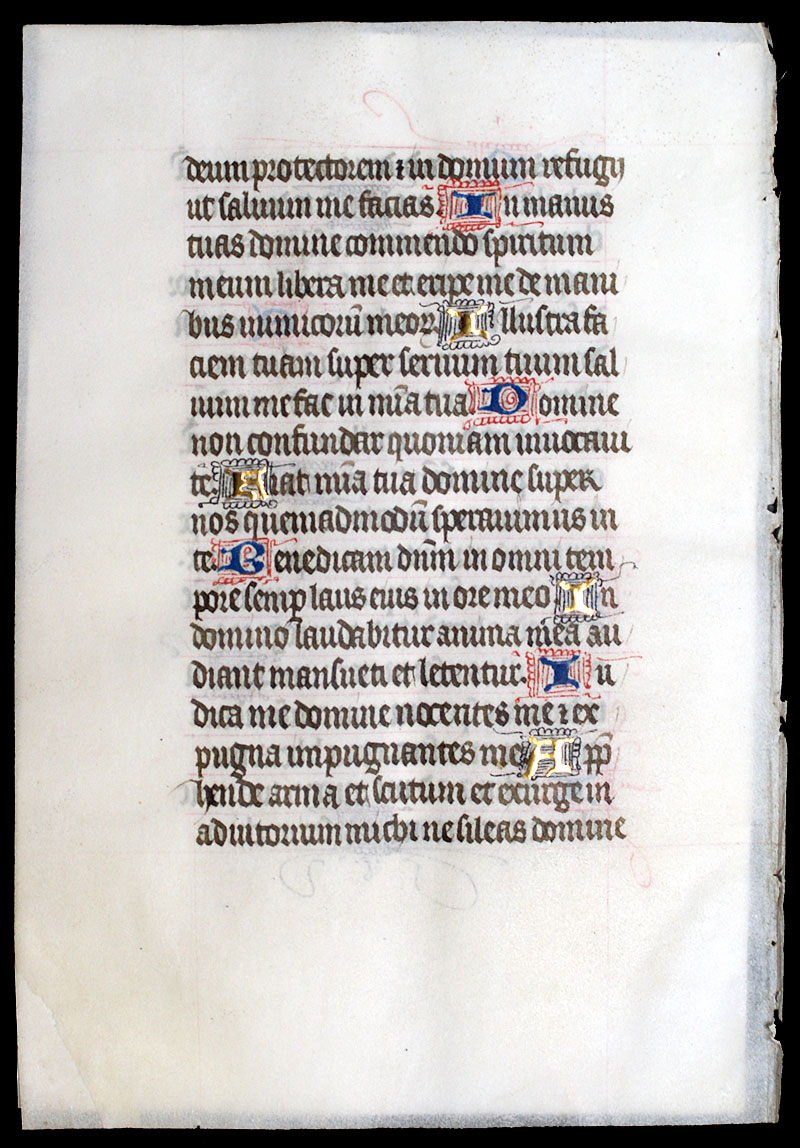 deum protectorem ⁊ in domum refugij
ut saluum me facias. In manus
tuas domine commendo spiritum
meum libera me et eripe me de mani
bus inimicorū meoꝝ. Illustra fa
ciem tuam super seruum tuum sal
uum me fac in mīa tua Domine
non confundar quoniam inuocaui
te. Fiat mīa tua domine super
nos quemadmodū sperauimus in
te. Benedicam dūm in omni tem
pore semꝑ laus eius in ore meo In
domino laudabitur anima mea au
diant mansueti et letentur. Iu
dica me domine nocentes me ⁊ ex
pugna impugnantes me App̄
hende arma et scutum et exurge in
adiutorium michi ne sileas domine